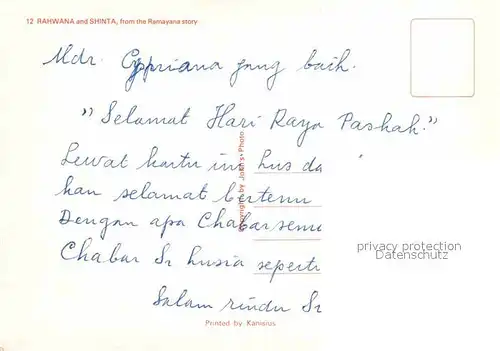 12 RAHWANA and SHINTA, from the Ramayana story
Mdr. Cypriana jang baik.
"Selamat Hari Raya Paskah."
Lewat kartu ini da
kan selamat bertemu
Dengan apa Chabar semu
Chabar Sr seperti
Salam rindu Sr
Copyright by John's Photo
privacy protection
Datenschutz
Printed by Kanisius